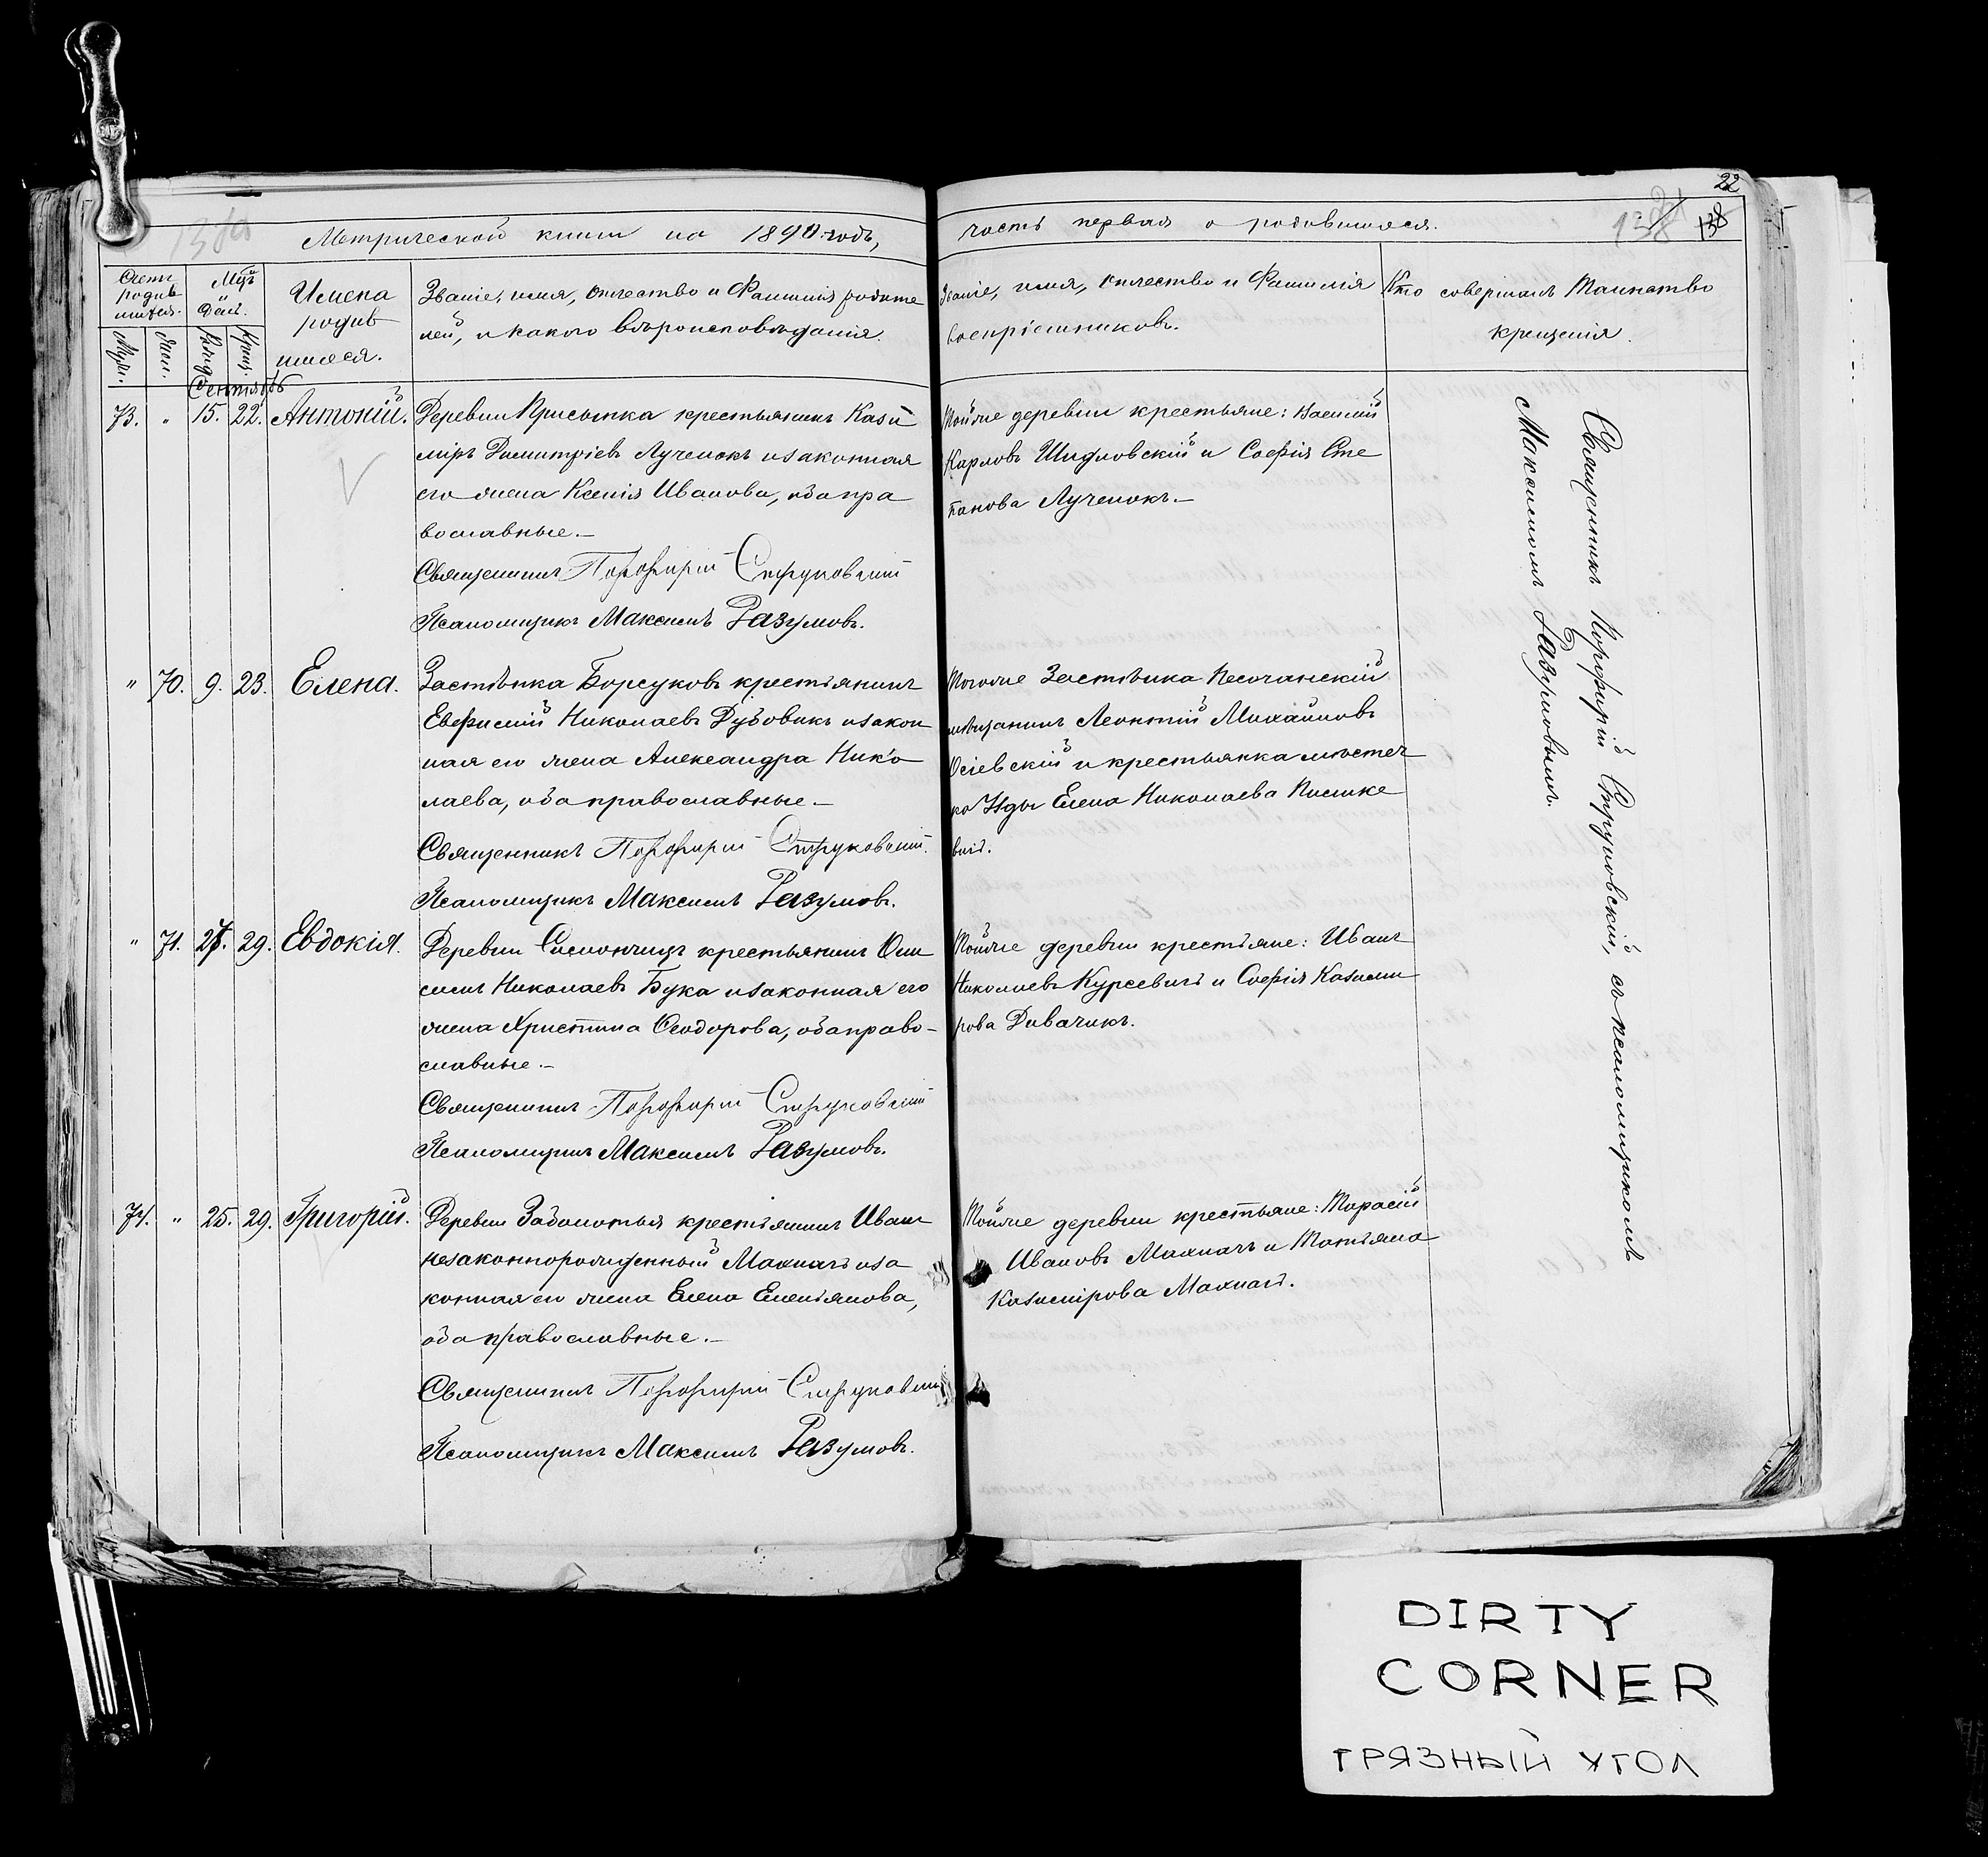 22
138
Метрической книги на 1890 годъ,
часть первая о родившихся.
Счетъ родив шихся.
Муж.
Жен.
Мѣц. и день.
Рожд.
Крещ.
Имена родив шихся.
Званіе, имя, отчество и Фамилія родите
лей, и какого вѣроисповѣданія.
Званіе, имя, отчество и Фамилія
воспріемниковъ.
Кто совершалъ Таинство
крещенія.
Сентябрь
73. " 15. 22. Антоній.
Деревни Присынка крестьянинъ Кази
міръ Димитріевъ Лученокъ и законная
его жена Ксенія Иванова, оба пра
вославные.—
Священникъ Порфирій Струковскій
Псаломщикъ Максимъ Разумовъ.
Тойже деревни крестьяне: Василій
Карловъ Шидловскій и Софія Сте
панова Лученокъ.—
" 70. 9. 23. Елена.
Застѣнка Борсуковъ крестьянинъ
Евфимій Николаевъ Дубовикъ и закон
ная его жена Александра Нико
лаева, оба православные.—
Священникъ Порфирій Струковскій.
Псаломщикъ Максимъ Разумовъ.
Тогоже Застѣнка Песочанскій
мѣщанинъ Леонтій Михайловъ
и крестьянка мѣстеч
ка Узды Елена Николаева
вичъ.
" 71. 29. Евдокія.
Деревни крестьянинъ Они
симъ Николаевъ Бука и законная его
жена Христина Ѳеодорова, оба право-
славные.—
Священникъ Порфирій Струковскій
Псаломщикъ Максимъ Разумовъ.
Тойже деревни крестьяне: Иванъ
Николаевъ Курсевичъ и Софія Казими
рова Дивачикъ.
74. " 25. 29. Григорій.
Деревни Заболотья крестьянинъ Иванъ
незаконнорожденный Махначъ и за
конная его жена Елена Емельянова,
оба православные.—
Священникъ Порфирій Струковскій
Псаломщикъ Максимъ Разумовъ.
Тойже деревни крестьяне: Тарасій
Ивановъ Махначъ и Татьяна
Казимірова Махначъ.
Священникъ Порфирій Струковскій, съ псаломщикомъ
Максимомъ Разумовымъ.
DIRTY
CORNER
ГРЯЗНЫЙ УГОЛ